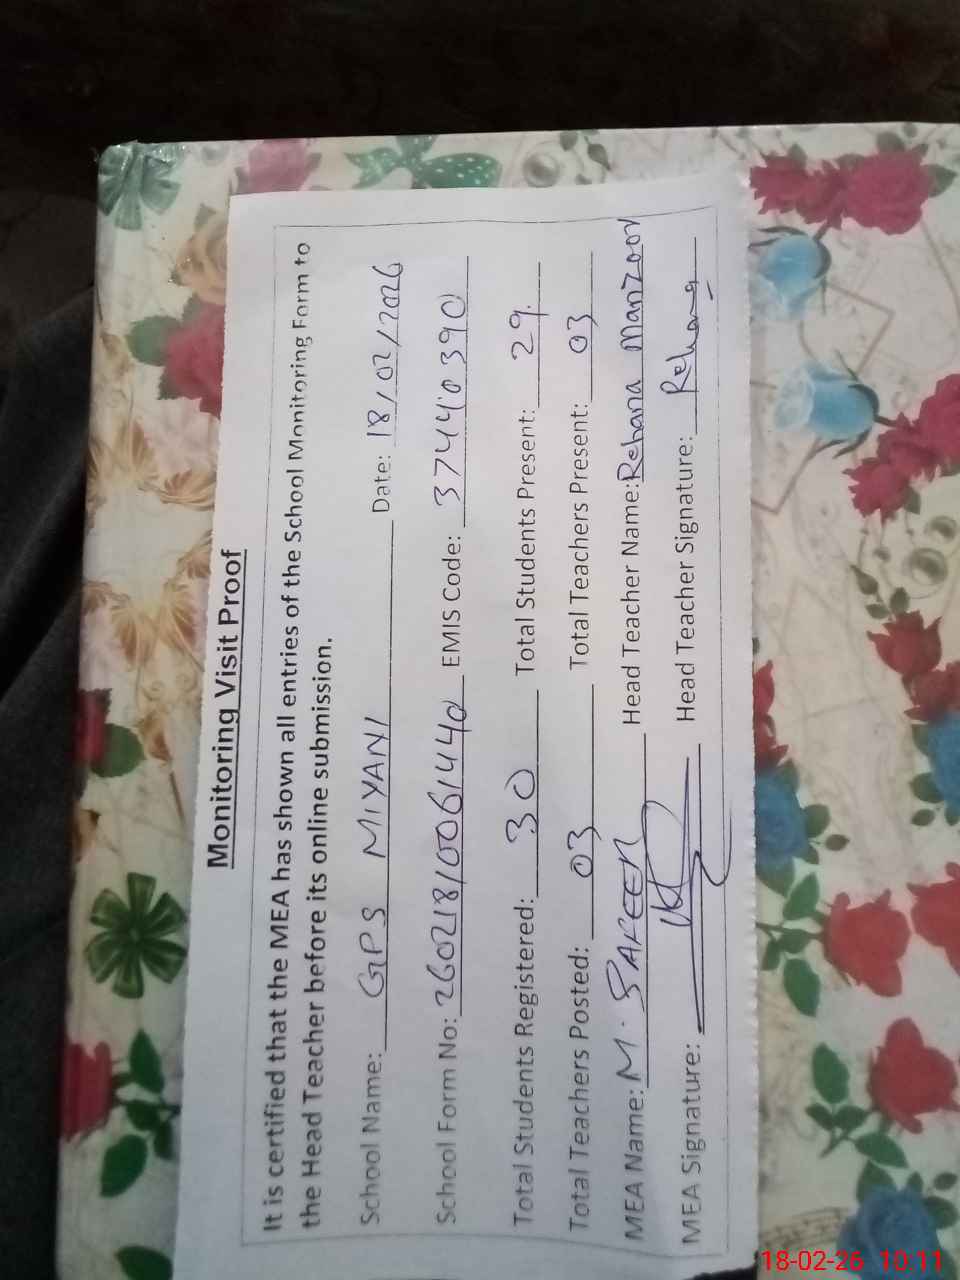 Monitoring Visit Proof
It is certified that the MEA has shown all entries of the School Monitoring Form to
the Head Teacher before its online submission.
School Name: GPS MIYANI Date: 18/02/2026
School Form No: 26021810061440 EMIS Code: 37440390
Total Students Registered: 30 Total Students Present: 29
Total Teachers Posted: 03 Total Teachers Present: 03
MEA Name: M. SAFEER Head Teacher Name: Rehana Manzoor
MEA Signature: Head Teacher Signature: Rehana
18-02-26 10:11